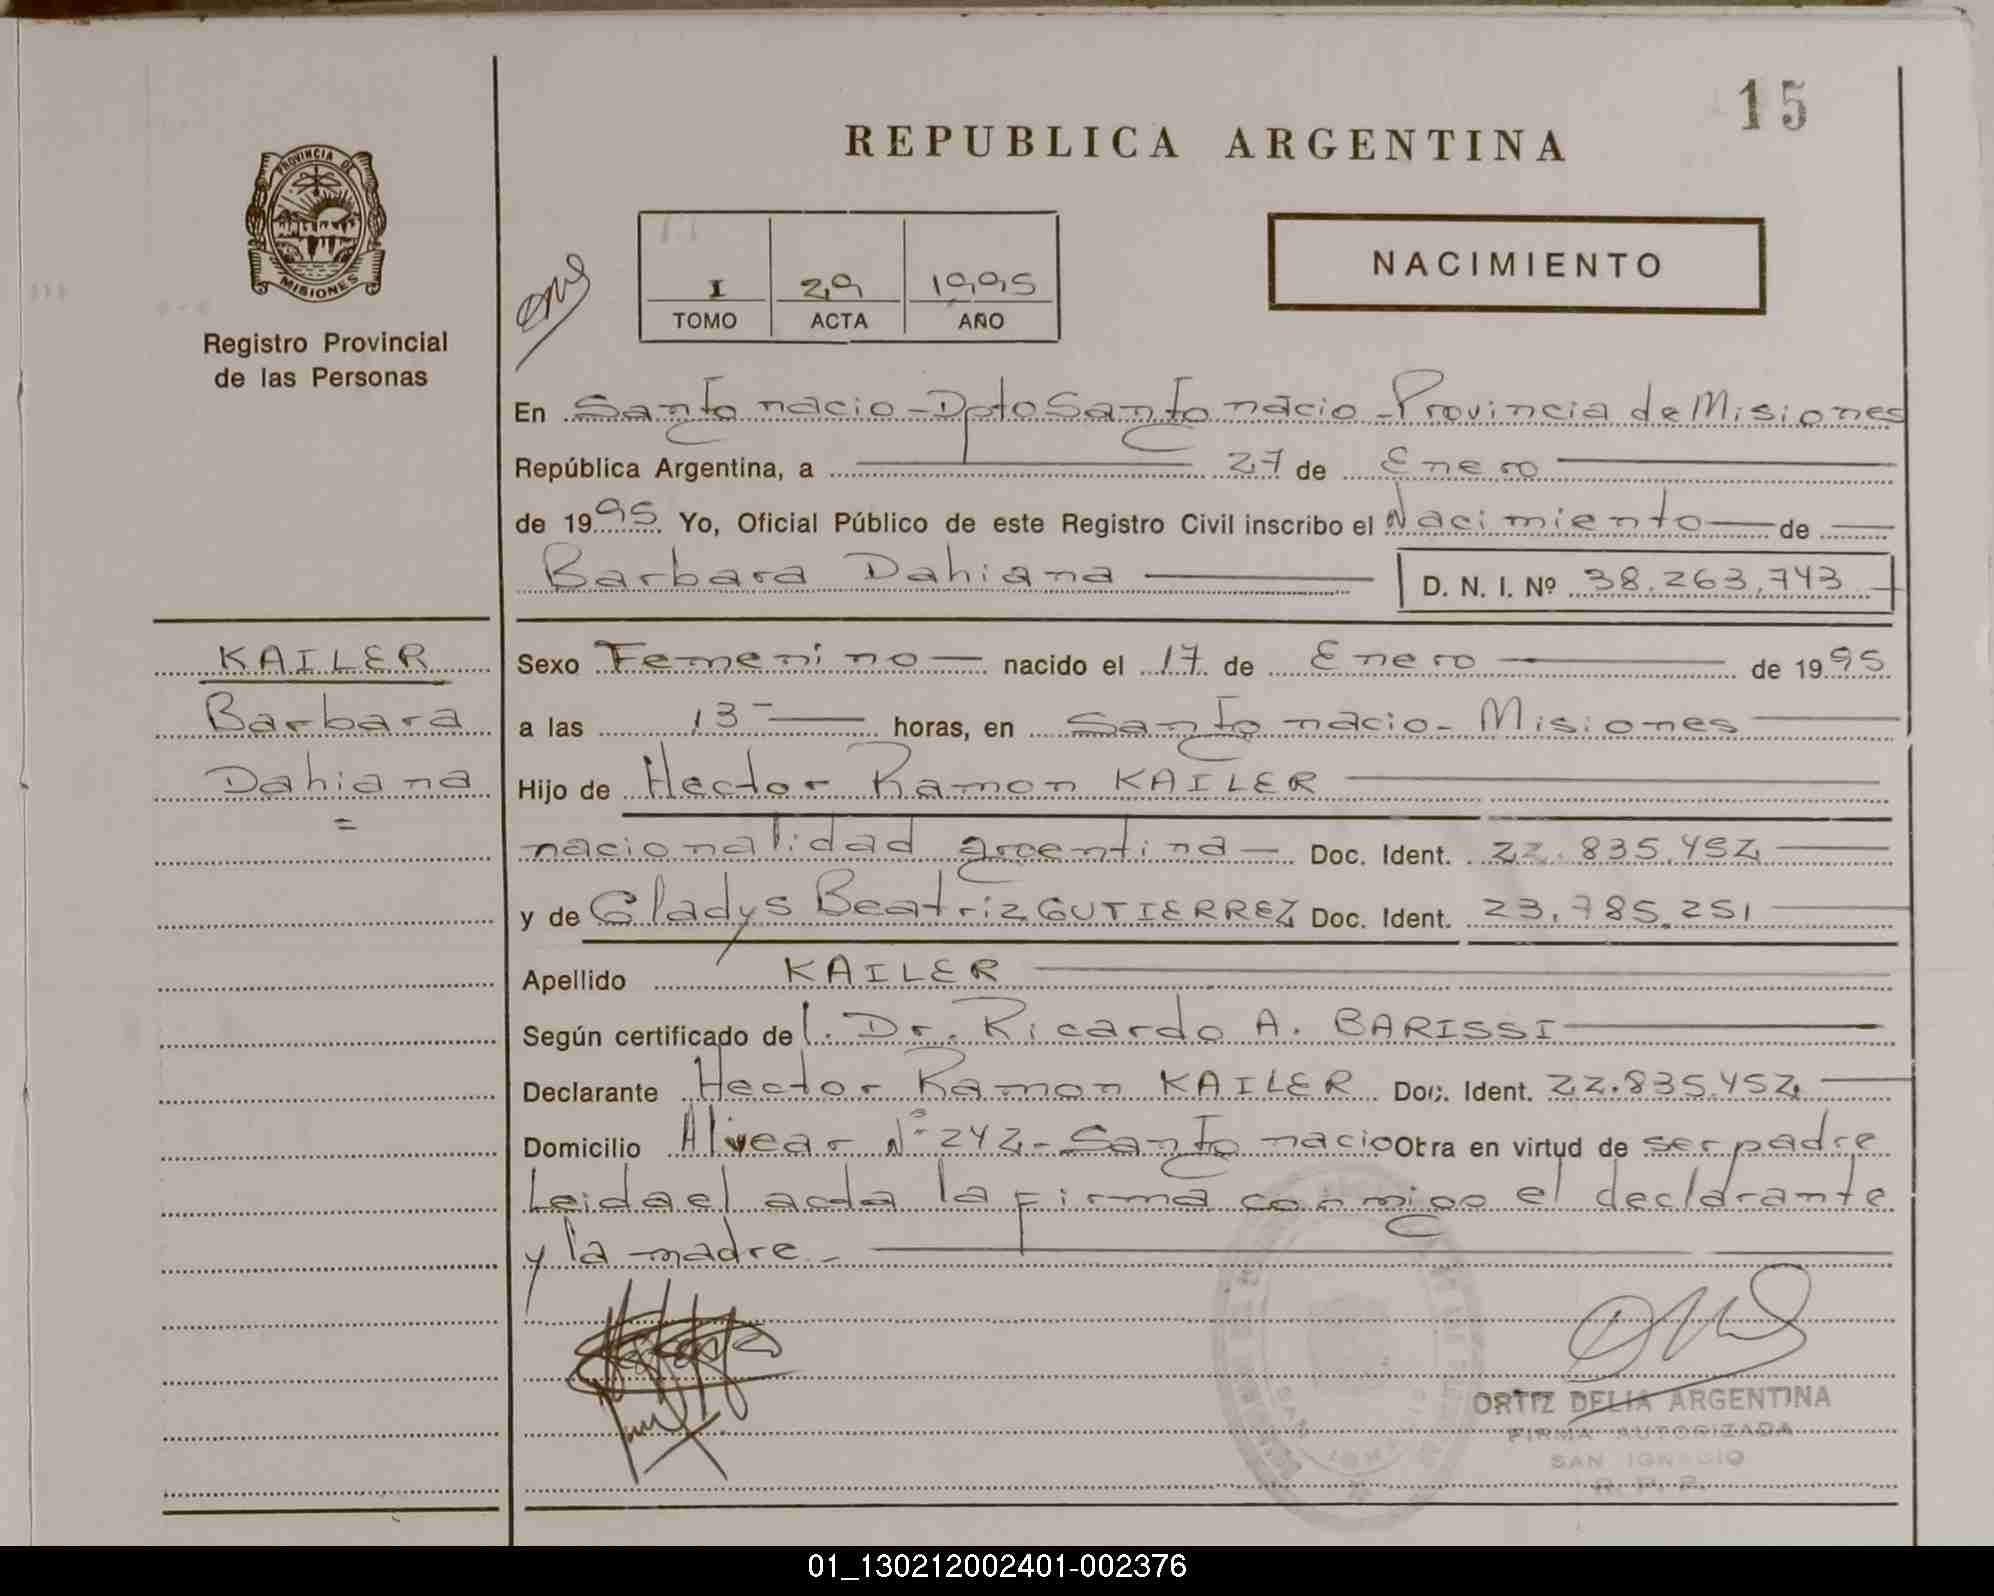 15
REPUBLICA ARGENTINA
PROVINCIA DE
MISIONES
Registro Provincial
de las Personas
I 29 1995
TOMO ACTA AÑO
NACIMIENTO
En San Ignacio - Dpto San Ignacio - Provincia de Misiones
República Argentina, a 27 de Enero
de 1995 Yo, Oficial Público de este Registro Civil inscribo el Nacimiento de
Barbara Dahiana D. N. I. Nº 38.263.743
KAILER
Barbara
Dahiana
=
Sexo Femenino nacido el 17 de Enero de 1995
a las 13 horas, en San Ignacio - Misiones
Hijo de Hector Ramon KAILER
nacionalidad argentina Doc. Ident. 22.835.452
y de Gladys Beatriz GUTIERREZ Doc. Ident. 23.785.251
Apellido KAILER
Según certificado del. Dr. Ricardo A. BARISSI
Declarante Hector Ramon KAILER Doc. Ident. 22.835.452
Domicilio Alvear Nº 242 - San Ignacio Obra en virtud de ser padre
Leida el acta la firma conmigo el declarante
y la madre -
ORTIZ DELIA ARGENTINA
FIRMA AUTORIZADA
SAN IGNACIO
R. P. P.
01_130212002401-002376